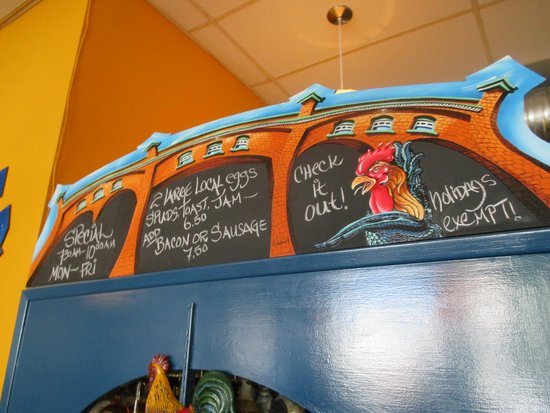 SPECIAL
7:30AM-10:30AM
MON-FRI
2 LARGE LOCAL EGGS
SPUDS-TOAST, JAM-
6.50
ADD
BACON OR SAUSAGE
7.50
CHECK
IT
OUT!
Holidays
EXEMPT!